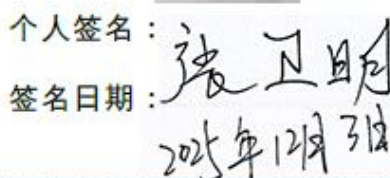 个人签名：张卫明
签名日期：2025年12月31日